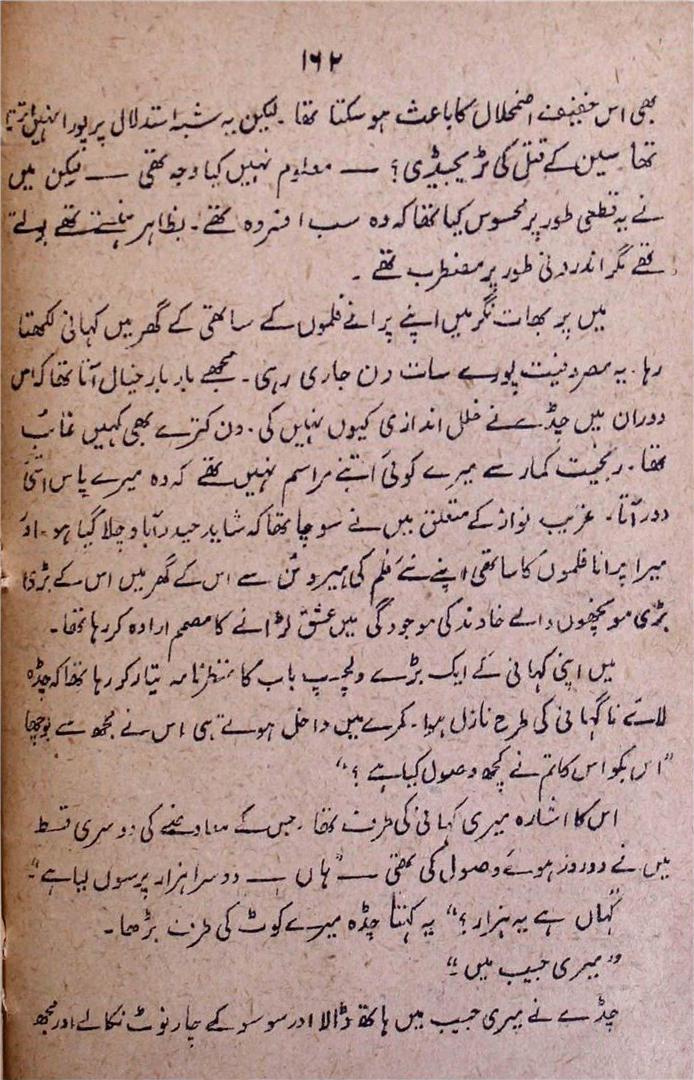 ۱۶۲
بھی اس خفیف سے اضمحلال کا باعث ہو سکتا تھا۔ لیکن یہ شبہ استدلال پر پورا نہیں اترتا
تھا۔ سین کے قتل کی ٹریجیڈی؟ — معلوم نہیں کیا وجہ تھی — لیکن میں
نے یہ قطعی طور پر محسوس کیا تھا کہ وہ سب افسردہ تھے۔ بظاہر ہنستے تھے بولتے
تھے مگر اندرونی طور پر مضطرب تھے۔
میں پربھات نگر میں اپنے پرانے فلموں کے ساتھی کے گھر میں کہانی لکھتا
رہا۔ یہ مصروفیت پورے سات دن جاری رہی۔ مجھے بار بار خیال آتا تھا کہ اس
دوران میں چڈے نے خلل اندازی کیوں نہیں کی۔ ون کترے بھی کہیں غائب
تھا۔ رنجیت کمار سے میرے کوئی اتنے مراسم نہیں تھے کہ وہ میرے پاس اتنی
دور آتا۔ غریب نواز کے متعلق میں نے سوچا تھا کہ شاید حیدر آباد چلا گیا ہو۔ اور
میرا پرانا فلموں کا ساتھی اپنے نئے فلم کی ہیروئن سے اس کے گھر میں اس کے بڑی
بڑی مونچھوں والے خاوند کی موجودگی میں عشق لڑانے کا مصمم ارادہ کر رہا تھا۔
میں اپنی کہانی کے ایک بڑے دلچسپ باب کا منظرنامہ تیار کر رہا تھا کہ چڈہ
بلائے ناگہانی کی طرح نازل ہوا۔ کمرے میں داخل ہوتے ہی اس نے مجھ سے پوچھا
”اس بکواس کا تم نے کچھ وصول کیا ہے؟“
اس کا اشارہ میری کہانی کی طرف تھا۔ جس کے معاوضے کی دوسری قسط
میں نے دو روز ہوئے وصول کی تھی — ”ہاں — دوسرا ہزار پرسوں لیا ہے“۔
”کہاں ہے یہ ہزار؟“ یہ کہتا چڈہ میرے کوٹ کی طرف بڑھا۔
”میری جیب میں۔“
چڈے نے میری جیب میں ہاتھ ڈالا اور سو سو کے چار نوٹ نکالے اور مجھ